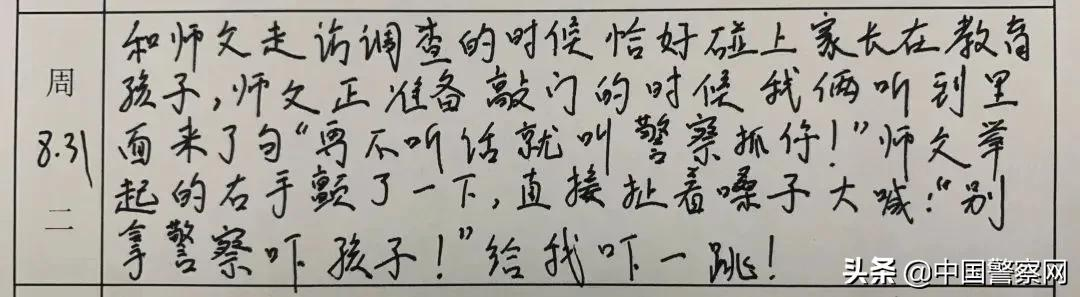 周
8.31
二
和师父走访调查的时候恰好碰上家长在教育
孩子,师父正准备敲门的时候我俩听到里
面来了句“再不听话就叫警察抓你!”师父举
起的右手颤了一下,直接扯着嗓子大喊:“别
拿警察吓孩子!”给我吓一跳!
头条 @中国警察网